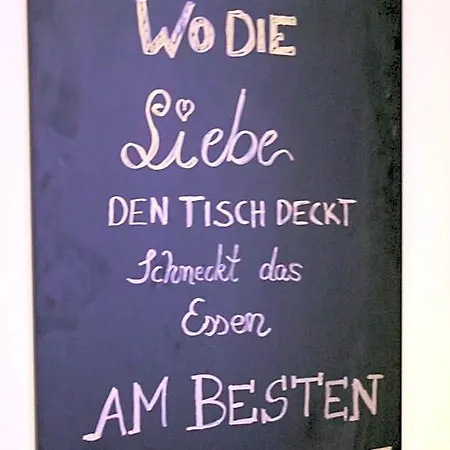 WO DIE
Liebe
DEN TISCH DECKT
Schneckt das
Essen
AM BESTEN